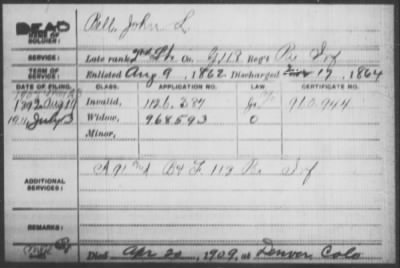 DEAD
NAME OF SOLDIER: Bell, John L.
SERVICE: Late rank 2nd Lt. Co. G, 118 Reg't Pa Inf
TERM OF SERVICE: Enlisted Aug 9, 1862 Discharged 17, 1864
DATE OF FILING. CLASS. APPLICATION NO. LAW CERTIFICATE NO.
1892 Aug 19 Invalid, 1126.287 910.944
1911 July 3 Widow, 968593 O
Minor,
ADDITIONAL SERVICES: F 118 Pa Inf
REMARKS:
Died Apr 20, 1909, at Denver, Colo